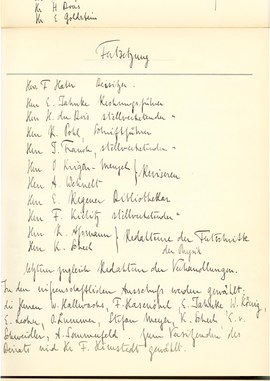 Hr H Boas
Hr E Goldstein
Fortsetzung
Herr F. Kurlbaum Beisitzer.
Herr E. Jahnke Rechnungsführer
Herr H. du Bois stellvertretender "
Herr R. Pohl, Schriftführer
Herr J. Franck, stellvertretender "
Herr O Krigar-Menzel } Revisoren
Herr A. Wehnelt
Herr E. Regener Bibliothekar
Herr F. Kiebitz stellvertretender "
Herr R. Assmann } Redakteure der Fortschritte
Herr K. Scheel
der Physik
letzterer zugleich Redakteur der Verhandlungen.
In den wissenschaftlichen Ausschuss werden gewählt
die Herren W. Hallwachs, F. Hasenöhrl E. Jahnke W. König,
E. Lecher, O. Lummer, Stefan Meyer, K. Scheel E. v.
Schweidler, A. Sommerfeld. Zum Vorsitzenden des
Beirats wird Hr F. Himstedt gewählt.